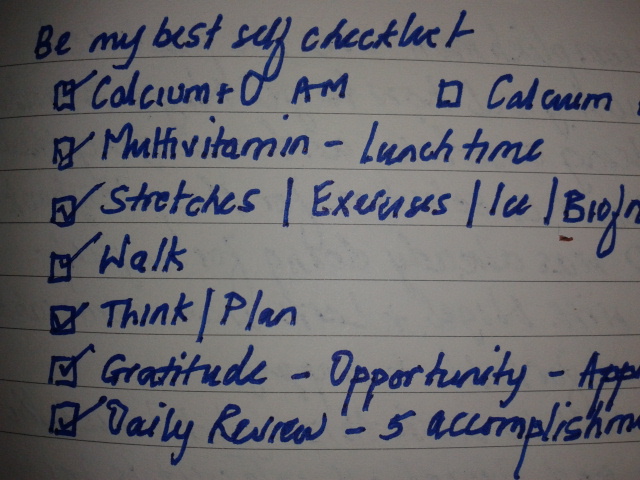 Be my best self checklist
☑ Calcium + D AM ☐ Calcium
☑ Multivitamin - Lunchtime
☑ Stretches | Exercises | Ice |
☑ Walk
☑ Think | Plan
☑ Gratitude - Opportunity - App
☑ Daily Review - 5 accomplishm